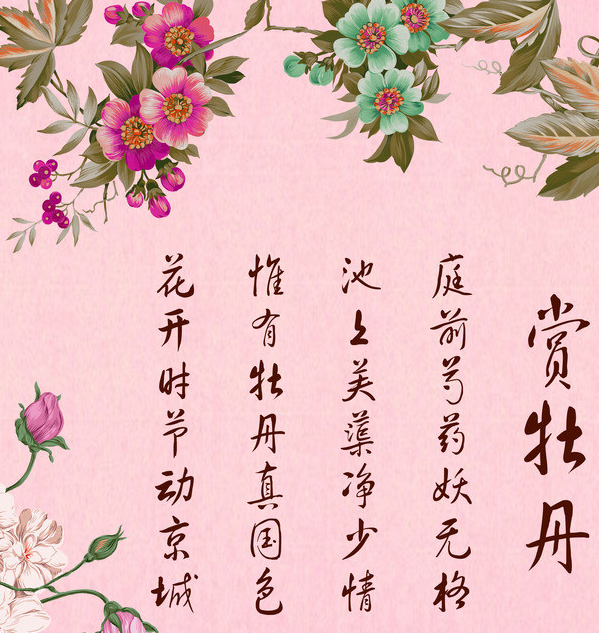 赏牡丹
庭前芍药妖无格
池上芙蕖净少情
惟有牡丹真国色
花开时节动京城